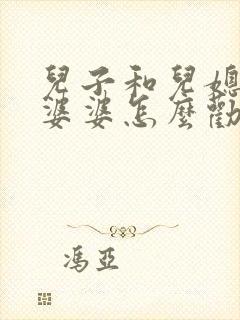 兒子和兒媳
婆婆怎麼勸
馮亞